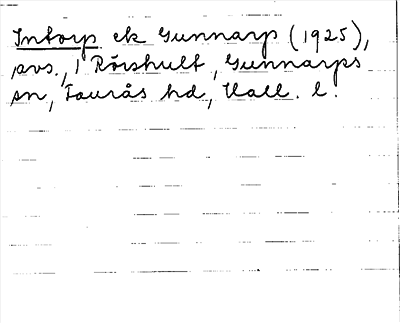 Intorp ek Gunnarp (1925),
avs., i Rörshult, Gunnarps
sn, Faurås hd, Hall. l.